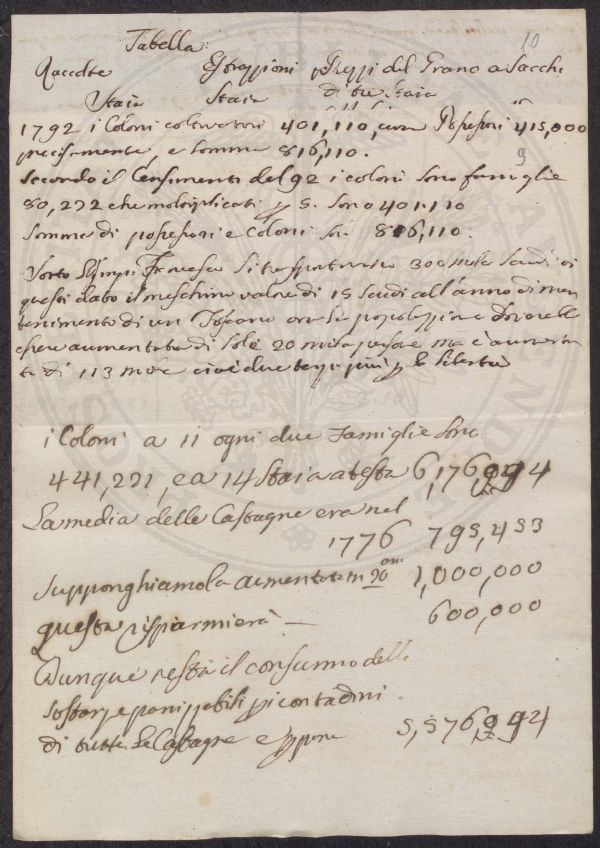 10
Tabella:
Raccolte Estrazzioni Prezzi del Grano a Sacchi
Staia Staia di tre Staia
1792 i Coloni coltivatori 401,110, Possessori 415,000
precisamente, e somma 816,110.
9
Secondo il Censimento del 92 i coloni sono famiglie
80,222 che moltiplicati p 5. sono 401.110
Somma di possessori e Coloni 816,110.
Sotto Franceso si trasportavano 300 mila Scudi
questi dato il meschino valore di 15 Scudi all'anno di man
tenimento di un Toscano la popolazzione
essere aumentata di sole 20 mila persone ma è aumenta
ta di 113 mila cioè due terzi più p la libertà
i Coloni a 11 ogni due Famiglie sono
441,221, e a 14 Staia a testa 6,176,994
La media delle Castagne era nel
1776 795,453
Supponghiamola aumentata in 20 1,000,000
questa risparmierà — 600,000
Dunque resta il consumo delle
panizzabili p i contadini
di tutte le Castagne e 5,576,994